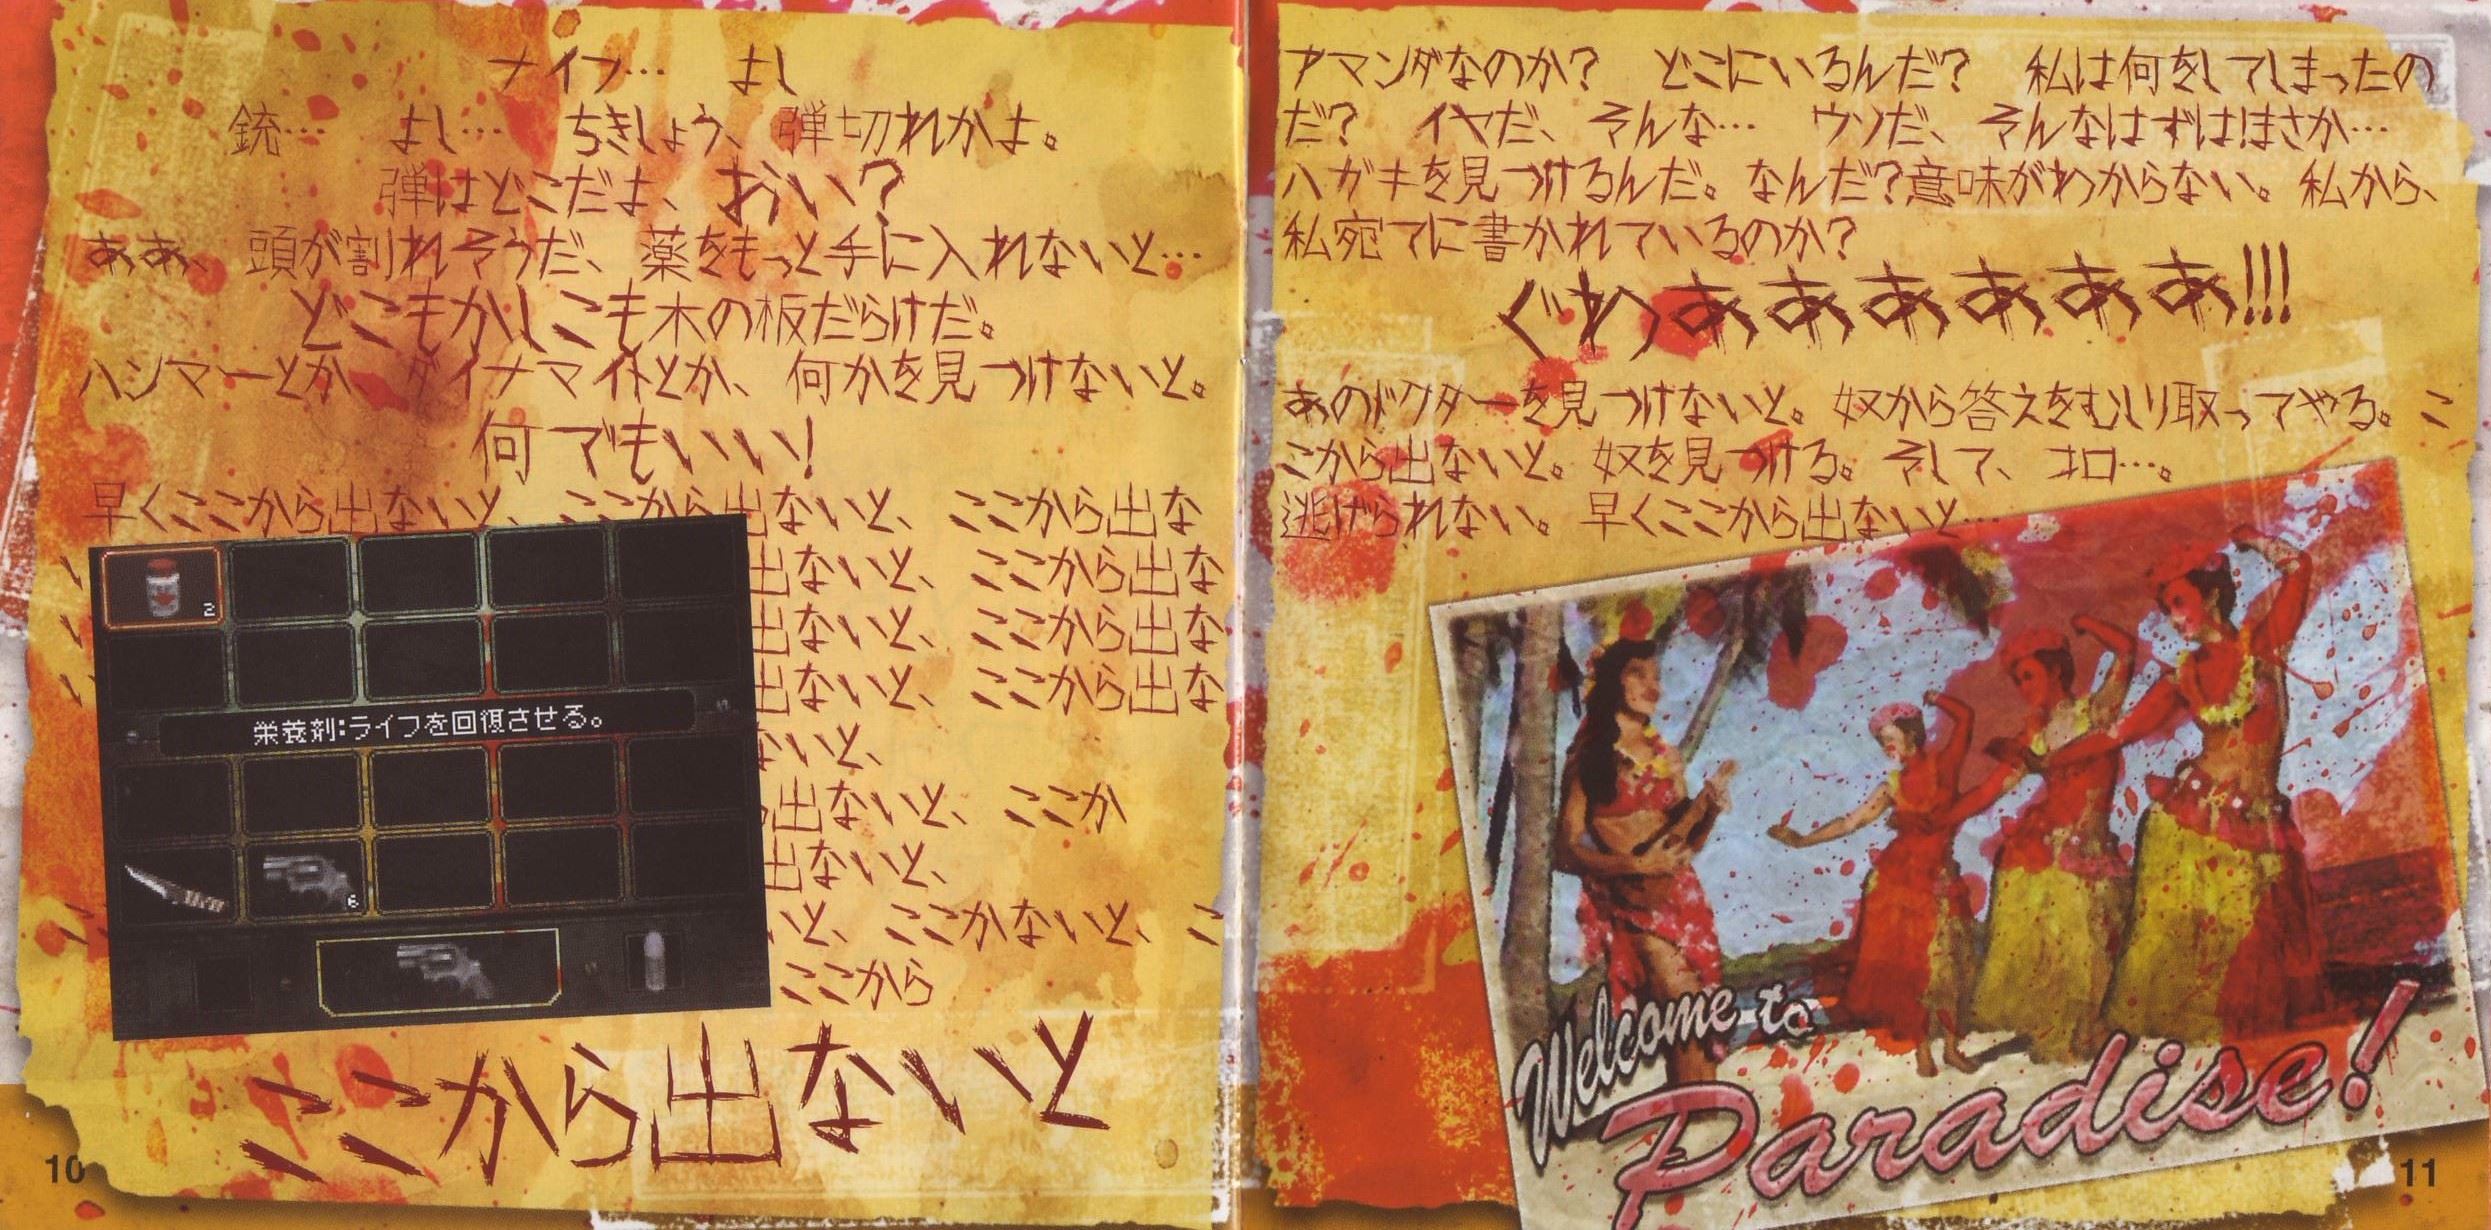 ナイフ… よし
銃… よし… ちきしょう、弾切れかよ。
弾はどこだよ、おい?
ああ、頭が割れそうだ、薬をもっと手に入れないと…
どこもかしこも木の板だらけだ。
ハンマーとか、ダイナマイトとか、何かを見つけないと。
何でもいいい!
早くここから出ないと、ここから出ないと、ここから出な
い
出ないと、ここから出な
い
出ないと、ここから出な
い
出ないと、ここから出な
ないと、
出ないと、ここか
出ないと、
いと、ここかないと、こ
ここから
ここから出ないと
2
栄養剤:ライフを回復させる。
6
10
アマンダなのか? どこにいるんだ? 私は何をしてしまったの
だ? イヤだ、そんな… ウソだ、そんなはずは!まさか…
ハガキを見つけるんだ。なんだ?意味がわからない。私から、
私宛てに書かれているのか?
ぐわっああああああ!!!
あのドクターを見つけないと。奴から答えをむしり取ってやる。こ
こから出ないと。奴を見つける。そして、コロ…。
逃げられない。早くここから出ないと…
Welcome to
Paradise!
11